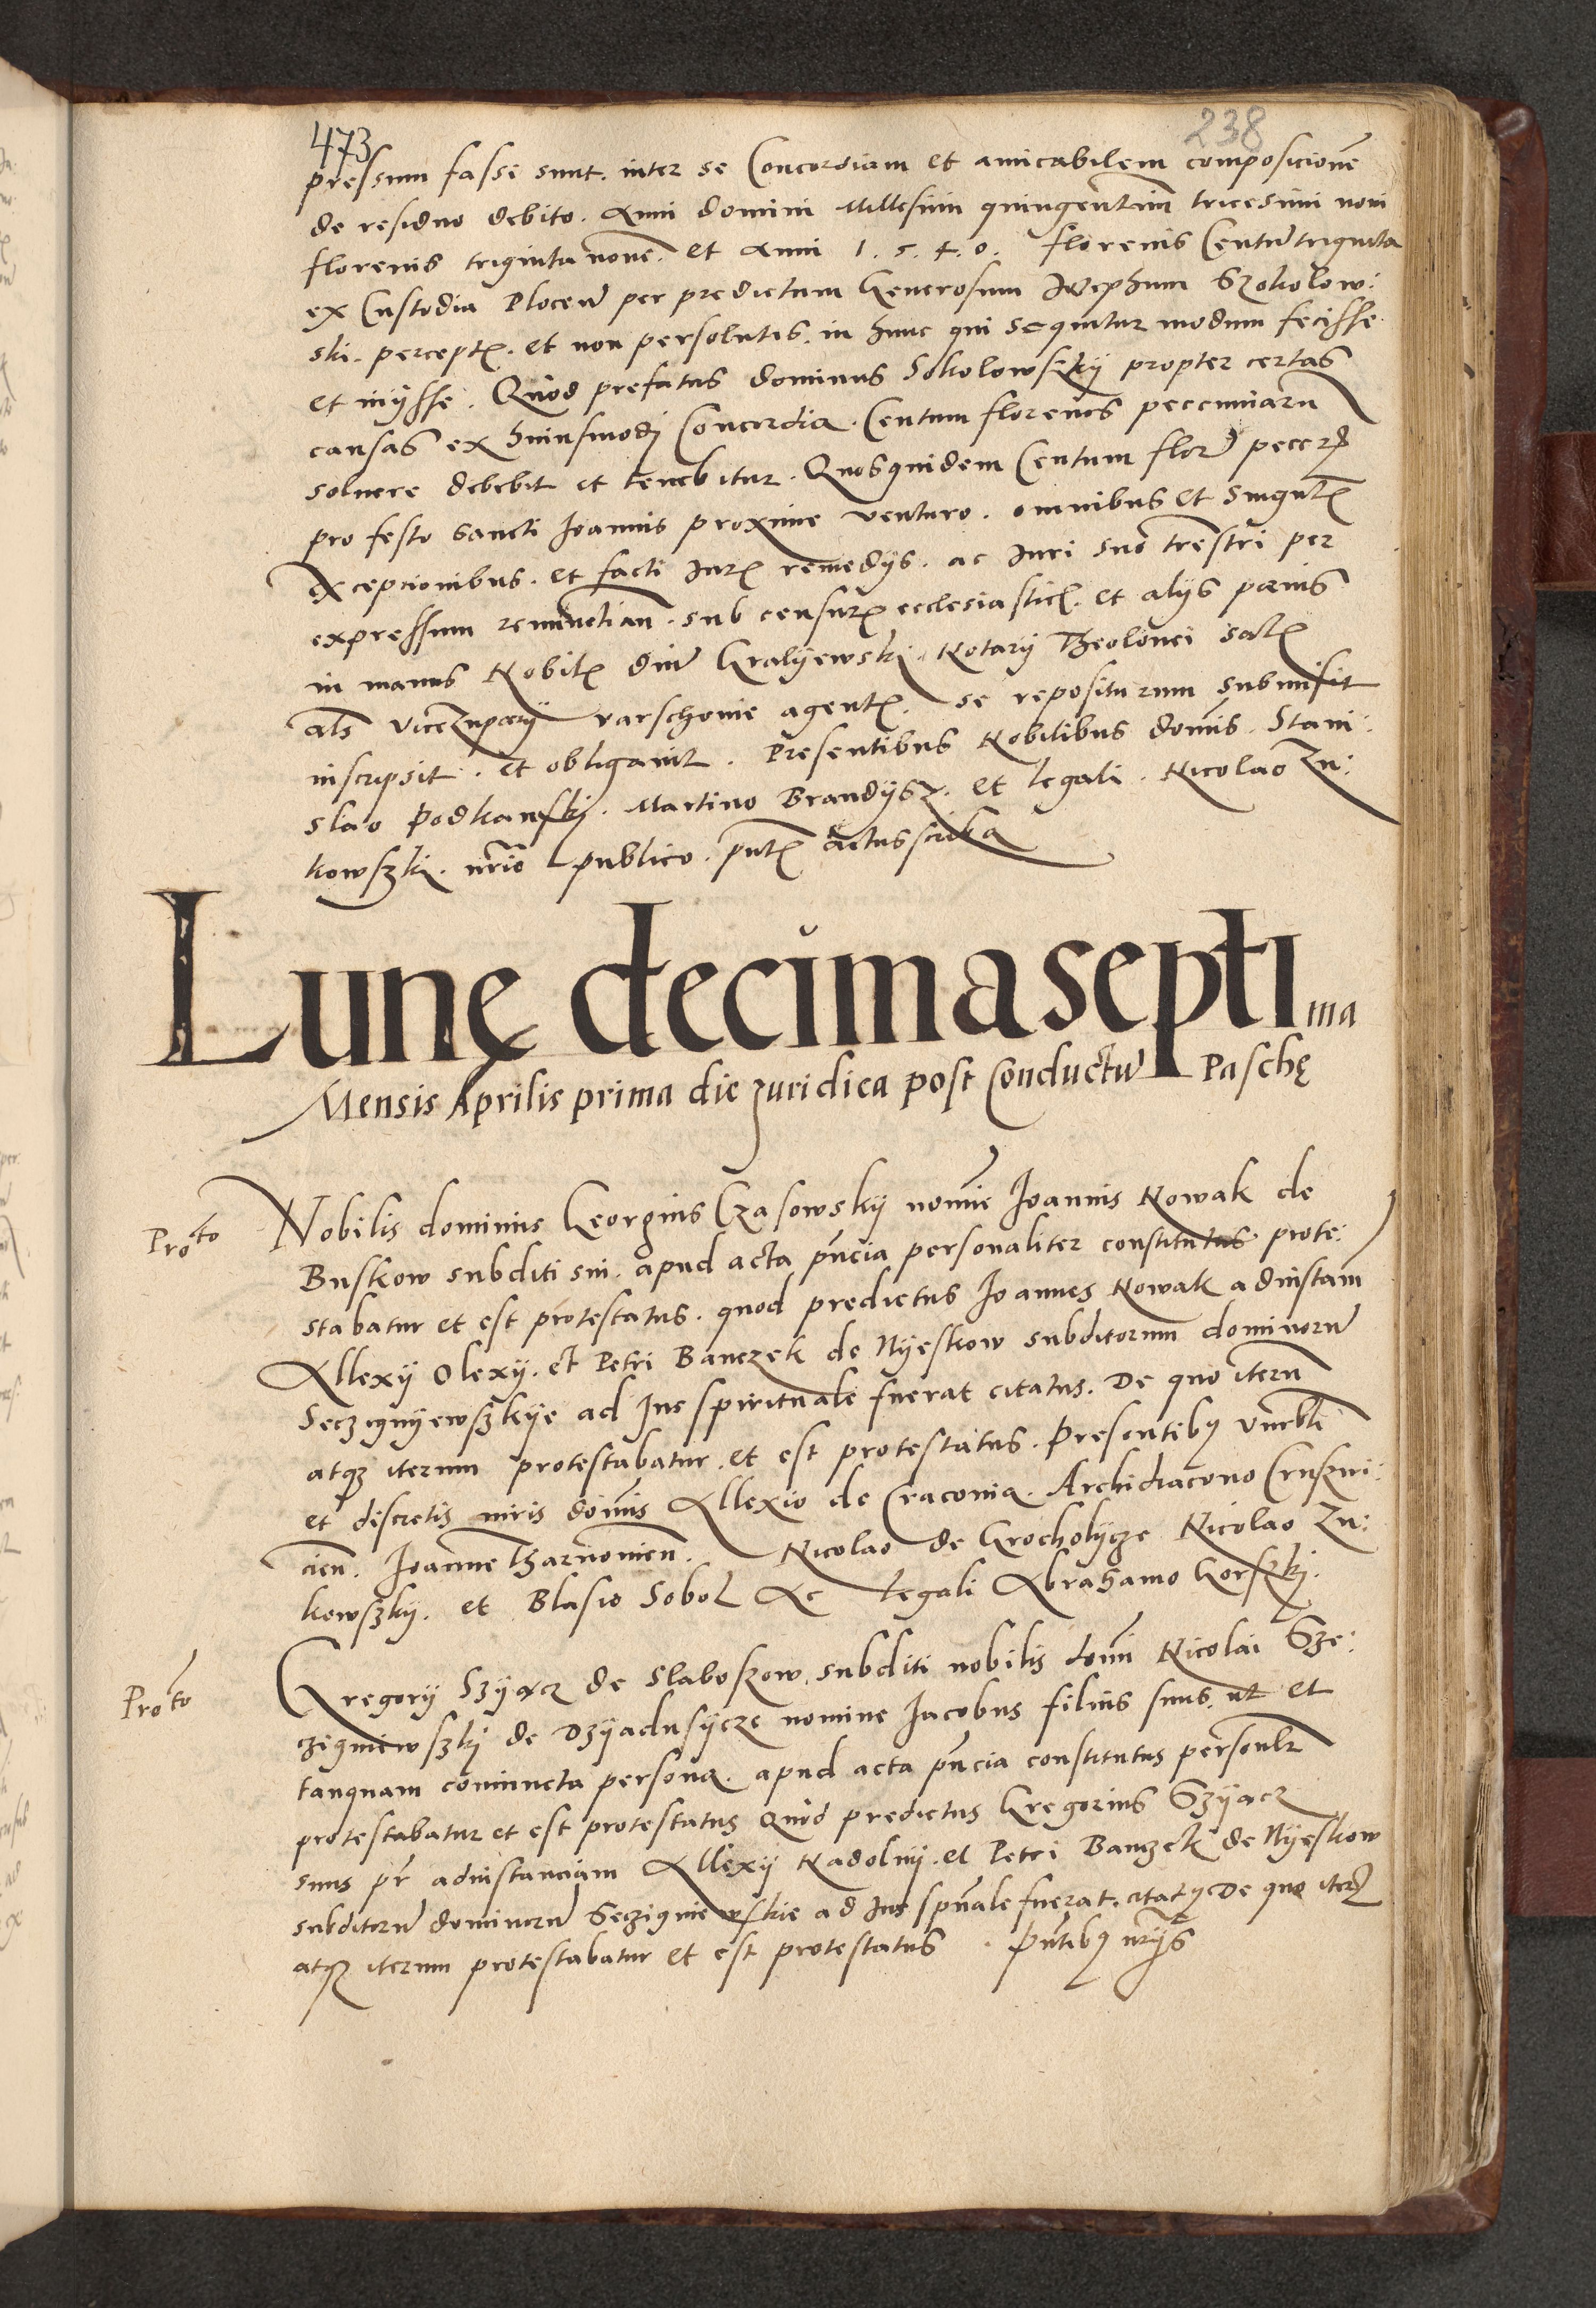 473 238
pressum fassi sunt. inter se Concordiam et amicabilem composicione
de residuo debito. Anni domini Millesimi quingentimi tricesimi noni
florenis triginta none. et Anni 1.5.4.0. florenis Centu triginta
ex Custodia Plocen per predictum Generosum Szokolow:
ski. percept. et non persolutis. in hunc qui sequitur modum fecisse
et inysse. Quod prefatus dominus Sokolowsky propter certas
causas ex huiusmodi Concordia. Centum florenos pecuniaru
soluere debebit et tenebitur. Quosquidem Centum flor pecc
pro festo sancti Joannis proxime venturo. omnibus et singul
Exceptionibus. et facti Jur remedys. ac Juri suo trestri per
expressum renunctian. sub censur ecclesiastic. et alys pœnis
in manus Nobil dni Gralyewski Notary Theolonei
als Vicezupary varschouie agent. se repositurum submisit
inscripsit. et obligauit. Presentibus Nobilibus domis. Stani:
slao Podkanski. Martino Brandysz. et legali. Nicolao Zu:
kowszki. nrio publico. pnt actus scriba
Lunę decima septima
Mensis Aprilis prima die Juridica post Conductu Paschę
Proto Nobilis dominus Georgius Czasowsky nomie Joannis Nowak de
Buskow subditi sui. apud acta pncia personaliter constitutus prote:
stabatur et est protestatus. quod predictus Joannes Nowak ad instam
Allexy Olexy. et Petri Banczek de Nyeskow subditorum dominoru
Seczygnyewszkye ad Jus spirituale fuerat citatus. De quo iteru
atq iterum protestabatur. et est protestatus. Presentib vnrbli
et discretis viris domis Allexio de Craconia. Archidiacono Cruszui:
cien. Joanne Tharnonien. Nicolao de Grocholycze Nicolao Zu:
kowszky. et Blasio Sobol Ac legali Abrahamo Gorszki.
Proto Gregory Szyacz de Slaboszow. subditi nobilis domi Nicolai Sze:
zigniewszki de Dzyadusycze nomine Jacobus filius suus. ut et
tanquam coniuncta persona. apud acta pncia constitutus personlr
protestabatur et est protestatus Quod predictus Gregorius Szyacz
suus pr ad instanciam Allexy Nadolny. et Petri Banczek de Nyeskow
subditoru dominoru Seczigniewskie ad Jus spuale fuerat. citat De quo iter
atq iterum protestabatur et est protestatus. pntib